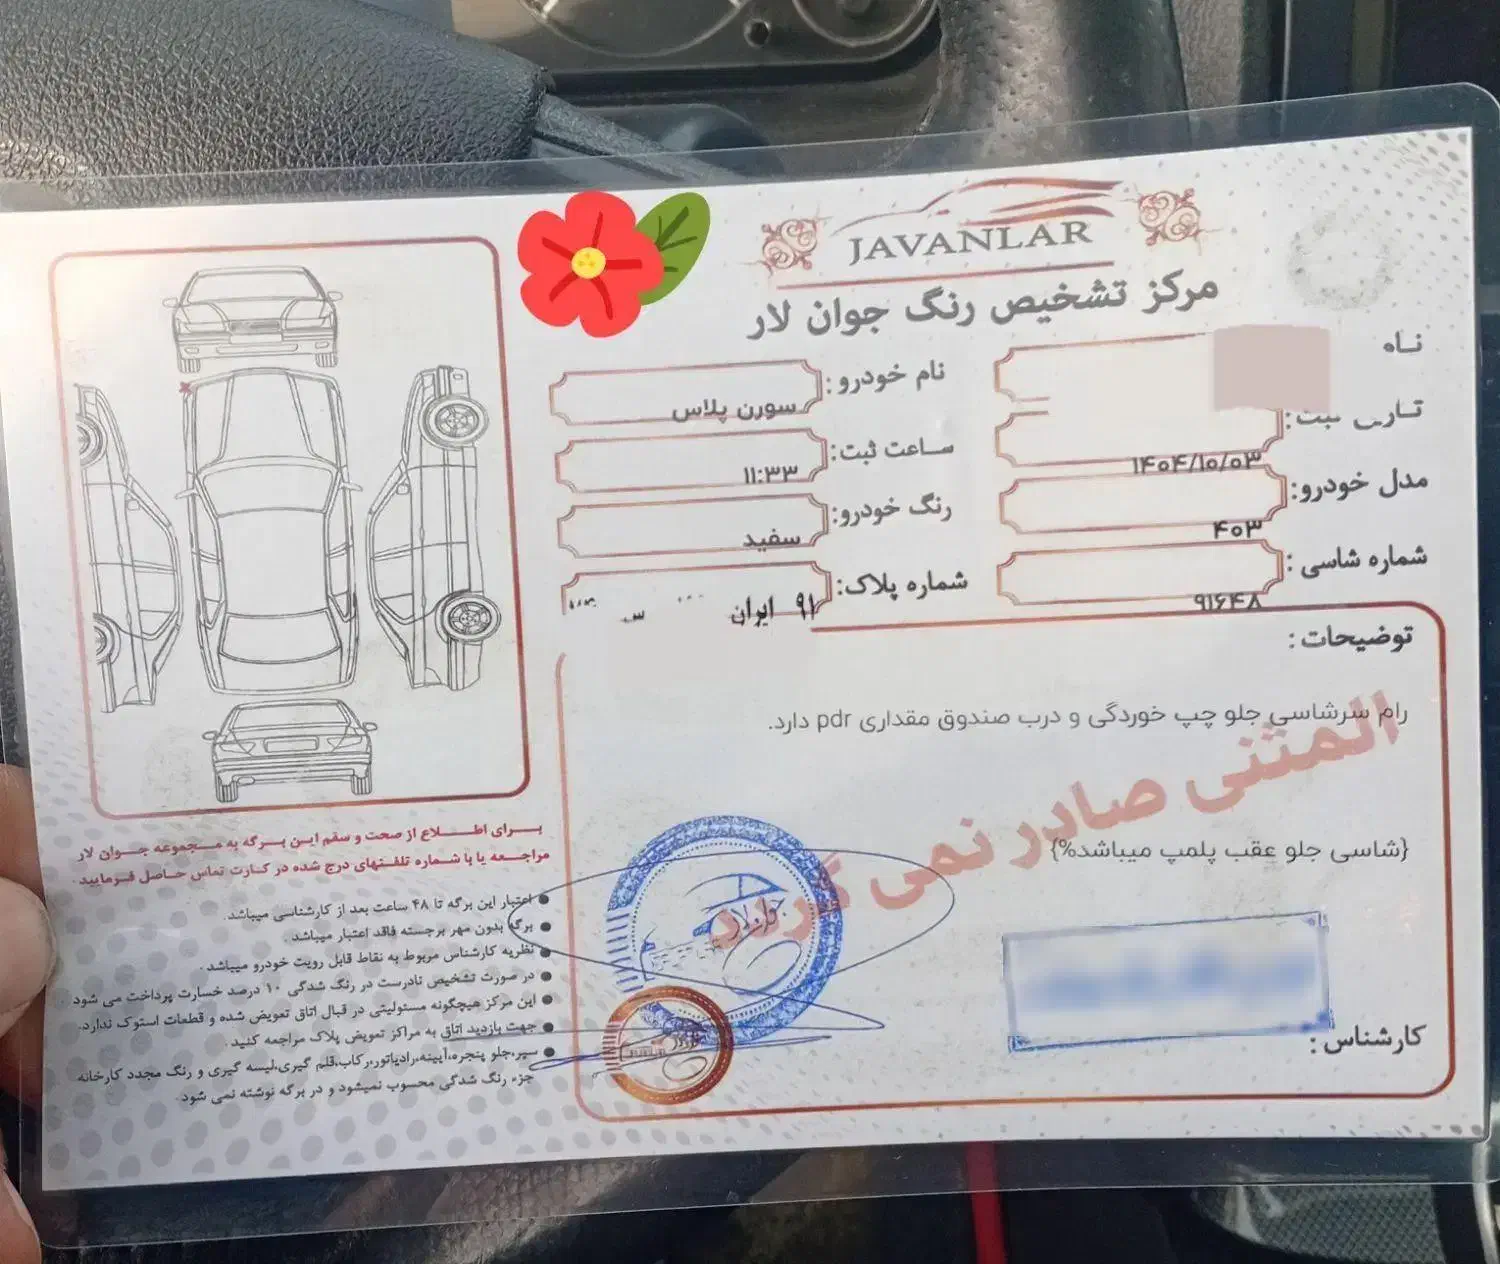 JAVANLAR
مرکز تشخیص رنگ جوان لار
نام خودرو: سورن پلاس
تاریخ ثبت: ۱۴۰۴/۱۰/۰۳
ساعت ثبت: ۱۱:۳۳
مدل خودرو: ۴۰۳
رنگ خودرو: سفید
شماره شاسی: ۹۱۶۴۸
شماره پلاک: ۹۱ ایران س
توضیحات:
رام سرشاسی جلو چپ خوردگی و درب صندوق مقداری pdr دارد.
المثنی صادر نمی گردد
{شاسی جلو عقب پلمپ میباشد%}
جوان لار
کارشناس:
برای اطلاع از صحت و سقم این برگه به مجموعه جوان لار
مراجعه یا با شماره تلفنهای درج شده در کارت تماس حاصل فرمایید
● اعتبار این برگه تا ۴۸ ساعت بعد از کارشناسی میباشد.
● برگه بدون مهر برجسته فاقد اعتبار میباشد.
● نظریه کارشناس مربوط به نقاط قابل رویت خودرو میباشد.
● در صورت تشخیص نادرست در رنگ شدگی ۱۰ درصد خسارت پرداخت می شود
● این مرکز هیچگونه مسئولیتی در قبال اتاق تعویض شده و قطعات استوک ندارد.
● جهت بازدید اتاق به مراکز تعویض پلاک مراجعه کنید.
● سپر،جلو پنجره،آیینه،رادیاتور،رکاب،قلم گیری،لیسه گیری و رنگ مجدد کارخانه
جزء رنگ شدگی محسوب نمیشود و در برگه نوشته نمی شود.